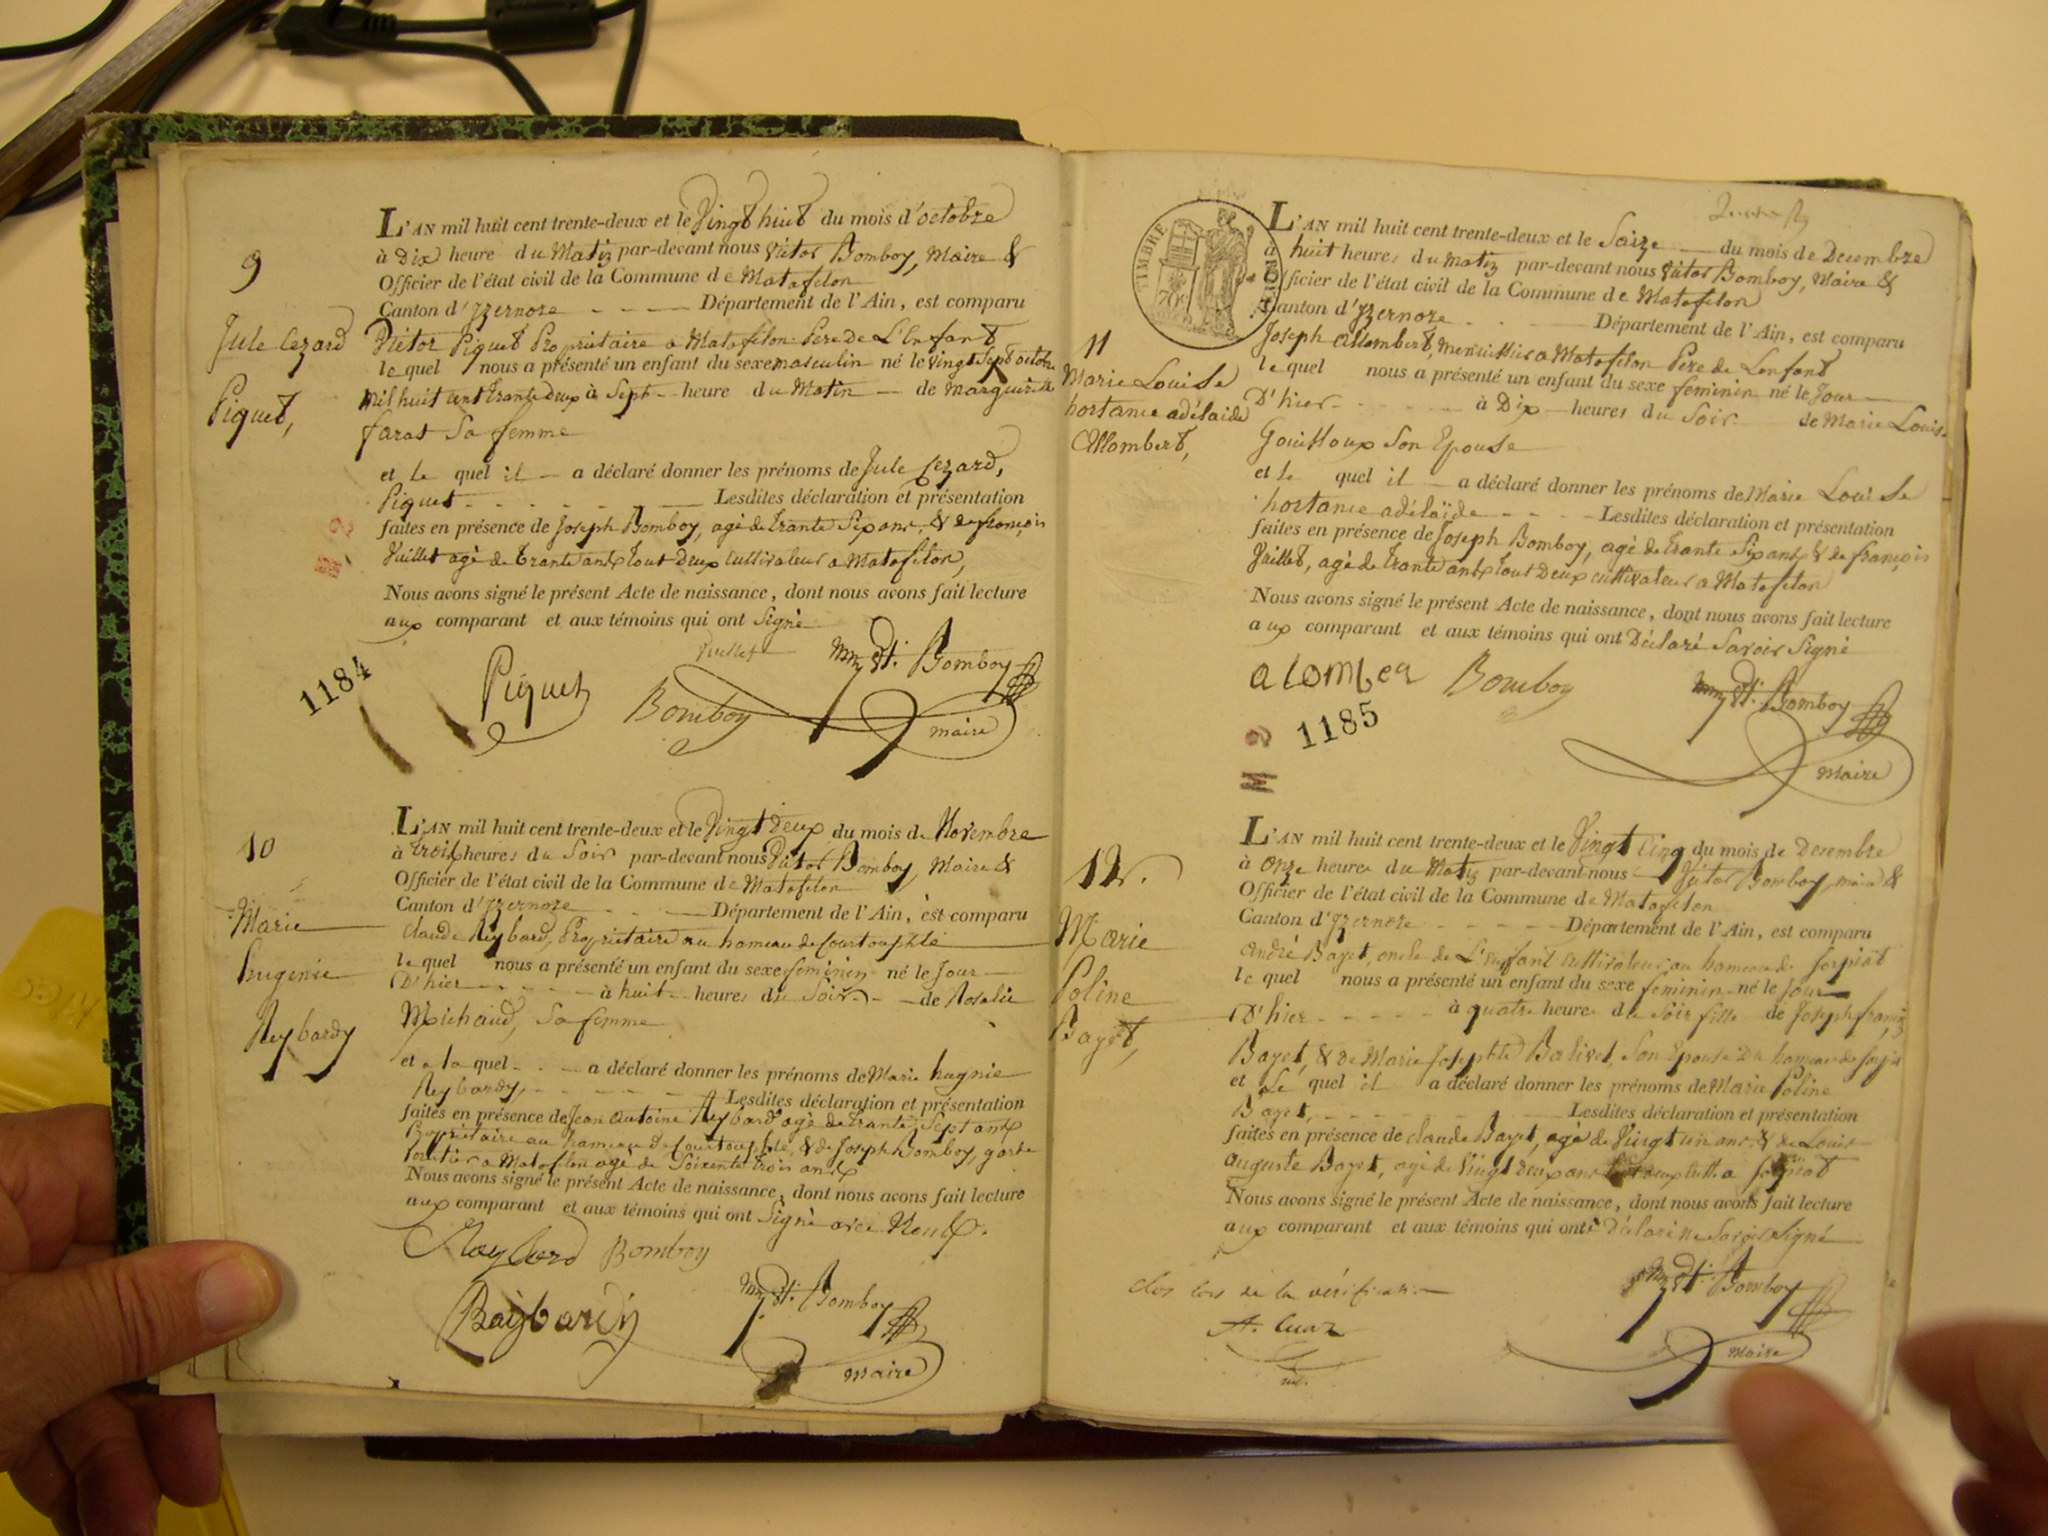 9
Jule Cezard
Piquet,
L'AN mil huit cent trente-deux et le Vingt huit du mois d'octobre
à Dix heure du Matin par-devant nous Victor Bomboy, Maire &
Officier de l'état civil de la Commune de Matafelon
Canton d'Yzernore - - - Département de l'Ain, est comparu
Victor Piquet Propriétaire a Matafelon Pere de L'Enfant
le quel nous a présenté un enfant du sexe masculin né le vingt Sept octobre
mil huit cent trante deux à Sept heure du Matin de Margueritte
farat Sa femme
et le quel il a déclaré donner les prénoms de Jule Cezard,
Piquet - - - - - Lesdites déclaration et présentation
faites en présence de Joseph Bomboy, agé de trante Six ans, & de françois
Vuillet agé de trante ans tout Deux Cultivateur a Matafelon,
Nous avons signé le présent Acte de naissance, dont nous avons fait lecture
aux comparant et aux témoins qui ont Signé
vuillet
Piquet Bomboy Bomboy
maire
1184
10
Marie
hugenie
Reybardy
L'AN mil huit cent trente-deux et le Vingt deux du mois de Novembre
à trois heures du Soir par-devant nous Victor Bomboy, Maire &
Officier de l'état civil de la Commune de Matafelon
Canton d'Yzernore - - - Département de l'Ain, est comparu
Claude Reybard, Propriétaire au hameau de Courtouphle
le quel nous a présenté un enfant du sexe feminin né le Jour
D'hier - - - - - à huit heures du Soir de Rosalie
Michaud, Sa femme
et a la quel - - - a déclaré donner les prénoms de Marie hugnie
Reybardy, - - - - - Lesdites déclaration et présentation
faites en présence de Jean antoine Reybard agé de trante Sept ans
Propriétaire au hameau de Courtouphle, & de Joseph Bomboy, garde
forétier a Matafelon agé de Soixente trois ans
Nous avons signé le présent Acte de naissance, dont nous avons fait lecture
aux comparant et aux témoins qui ont Signé avec Nous.
Reybard Bomboy
Raybardy Bomboy
maire
TIMBRE ROYAL
70c
11
Marie Louise
hortance adélaide
Allombert,
L'AN mil huit cent trente-deux et le Saize du mois de Decembre
huit heures du Matin par-devant nous Victor Bomboy, Maire &
Officier de l'état civil de la Commune de Matafelon
Canton d'Yzernore - - - Département de l'Ain, est comparu
Joseph Allombert, menuisier a Matafelon Pere de Lenfant
le quel nous a présenté un enfant du sexe feminin né le Jour
D'hier - - - - - à Dix heures du Soir de Marie Louise
Gouilloux Son Epouse
et le quel il a déclaré donner les prénoms de Marie Louise
hortance adélaïde - - - - Lesdites déclaration et présentation
faites en présence de Joseph Bomboy, agé de trante Six ans, & de françois
Vuillet, agé de trante ans tout Deux cultivateur a Matafelon
Nous avons signé le présent Acte de naissance, dont nous avons fait lecture
aux comparant et aux témoins qui ont Déclaré Savoir Signé
alomber Bomboy Bomboy
maire
1185
12.
Marie
Poline
Bayet,
L'AN mil huit cent trente-deux et le Vingt Cinq du mois de Decembre
à onze heures du Matin par-devant nous Victor Bomboy, maire &
Officier de l'état civil de la Commune de Matafelon
Canton d'Yzernore - - - - Département de l'Ain, est comparu
André Bayet, oncle de L'enfant Cultivateur au hameau de
le quel nous a présenté un enfant du sexe feminin né le Jour
D'hier - - - - - à quatre heures du Soir fille de Joseph françois
Bayet, & de Marie Josephte Balivet, Son Epouse Du hameau de
et Le quel il a déclaré donner les prénoms de Marie Poline
Bayet, - - - - - Lesdites déclaration et présentation
faites en présence de Claude Bayet, agé de Vingt un ans, & de Louis
auguste Bayet, agé de vingt deux ans tout deux Cult. a
Nous avons signé le présent Acte de naissance, dont nous avons fait lecture
aux comparant et aux témoins qui ont Déclaré Ne Savoir Signé
Bomboy
maire
Clos lors de la vérification